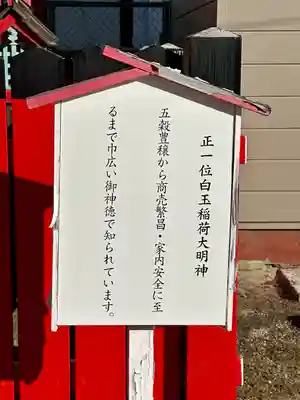 正一位白玉稲荷大明神
五穀豊穣から商売繁昌・家内安全に至
るまで巾広い御神徳で知られています。